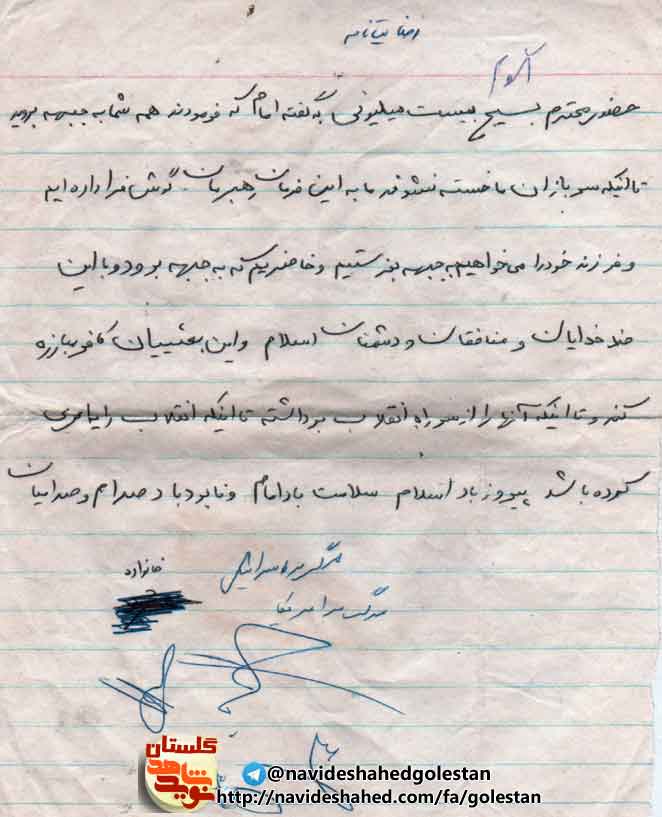 رضایتنامه
حضور محترم بسیج بیست میلیونی به گفته امام که فرمودند همه شما به جبهه بروید
تا اینکه سربازان ما خسته نشوند ما به این فرمان رهبرمان گوش فرا داده ایم
و فرزند خود را می خواهیم به جبهه بفرستیم و حاضریم که به جبهه برود و با این
ضد خدایان و منافقان و دشمنان اسلام و این بعثییان کافر مبارزه
کند و تا اینکه آنها را از سر راه انقلاب برداشته تا اینکه انقلاب را یاری
کرده باشد پیروز باد اسلام سلامت باد امام و نابود باد صدام و صدامیان
مرگ بر اسرائیل
خانواده
مرگ بر امریکا
گلستان
نوید شاهد
@navideshahedgolestan
http://navideshahed.com/fa/golestan